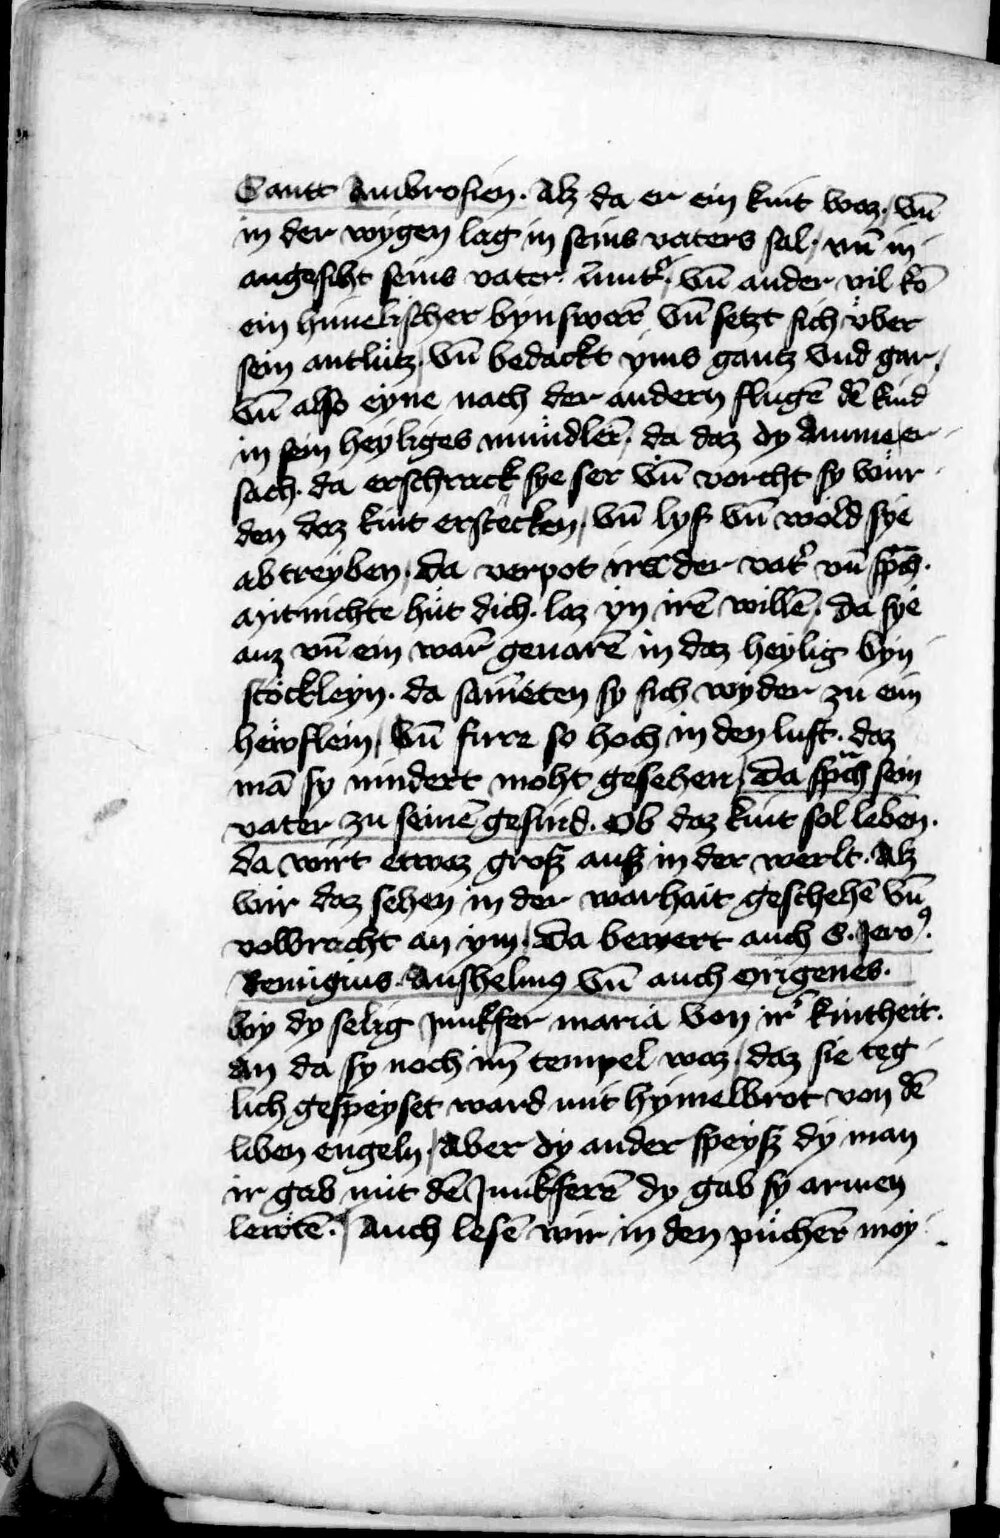 Santt Ambrosien. Alz da er ein kint waz, vn̄
in der wygen lag in seins vaters sal, vn̄ in
angesiht seins vater. vn̄ ander vil kō
ein himelischer bynswarē vn̄ setzt sich vber
sein antlütz, vn̄ bedackt yms gantz vnd gar,
vn̄ also eyne nach der andern flugē dē kind
in sein heyliges mündlen̄, da daz dy Amme er
sach. da erschrack sye ser vn̄ vorcht sy wür
den daz kint erstecken, vn̄ lyf vn̄ wöld sye
abtreyben, da verpot irs der vat᷑ vn̄ sp̄ch.
Mitnichte hüt dich. laz yn irē willē. da sye
auz vn̄ ein warē geuarē in daz heylig byn
stöckleyn. da sam̄eten sy sich wyder zu eim
hewflein, vn̄ furn so hoch in den luft. daz
mā sy nindert moht gesehen, da sp̄ch sein
vater zu seinē gesind. Ob daz kint sol leben.
da wirt etwaz grosz ausz in der werlt. Alz
wir daz sehen in der warhait geschehē vn̄
volbracht an ym, Da bewert auch S. Jeroꝰ.
Remigius. Anshelmꝰ vn̄ auch origenes.
Wy dy selig Junkfer maria von ir᷑ kintheit.
an da sy noch im̄ tempel waz, daz sie teg
lich gespeyset ward mit hymelbrot von dē
liben engeln, Aber dy ander speysz dy man
ir gab mit dē Junkferē dy gab sy armen
lewtē. Auch lesē wir in den püchern̄ moy